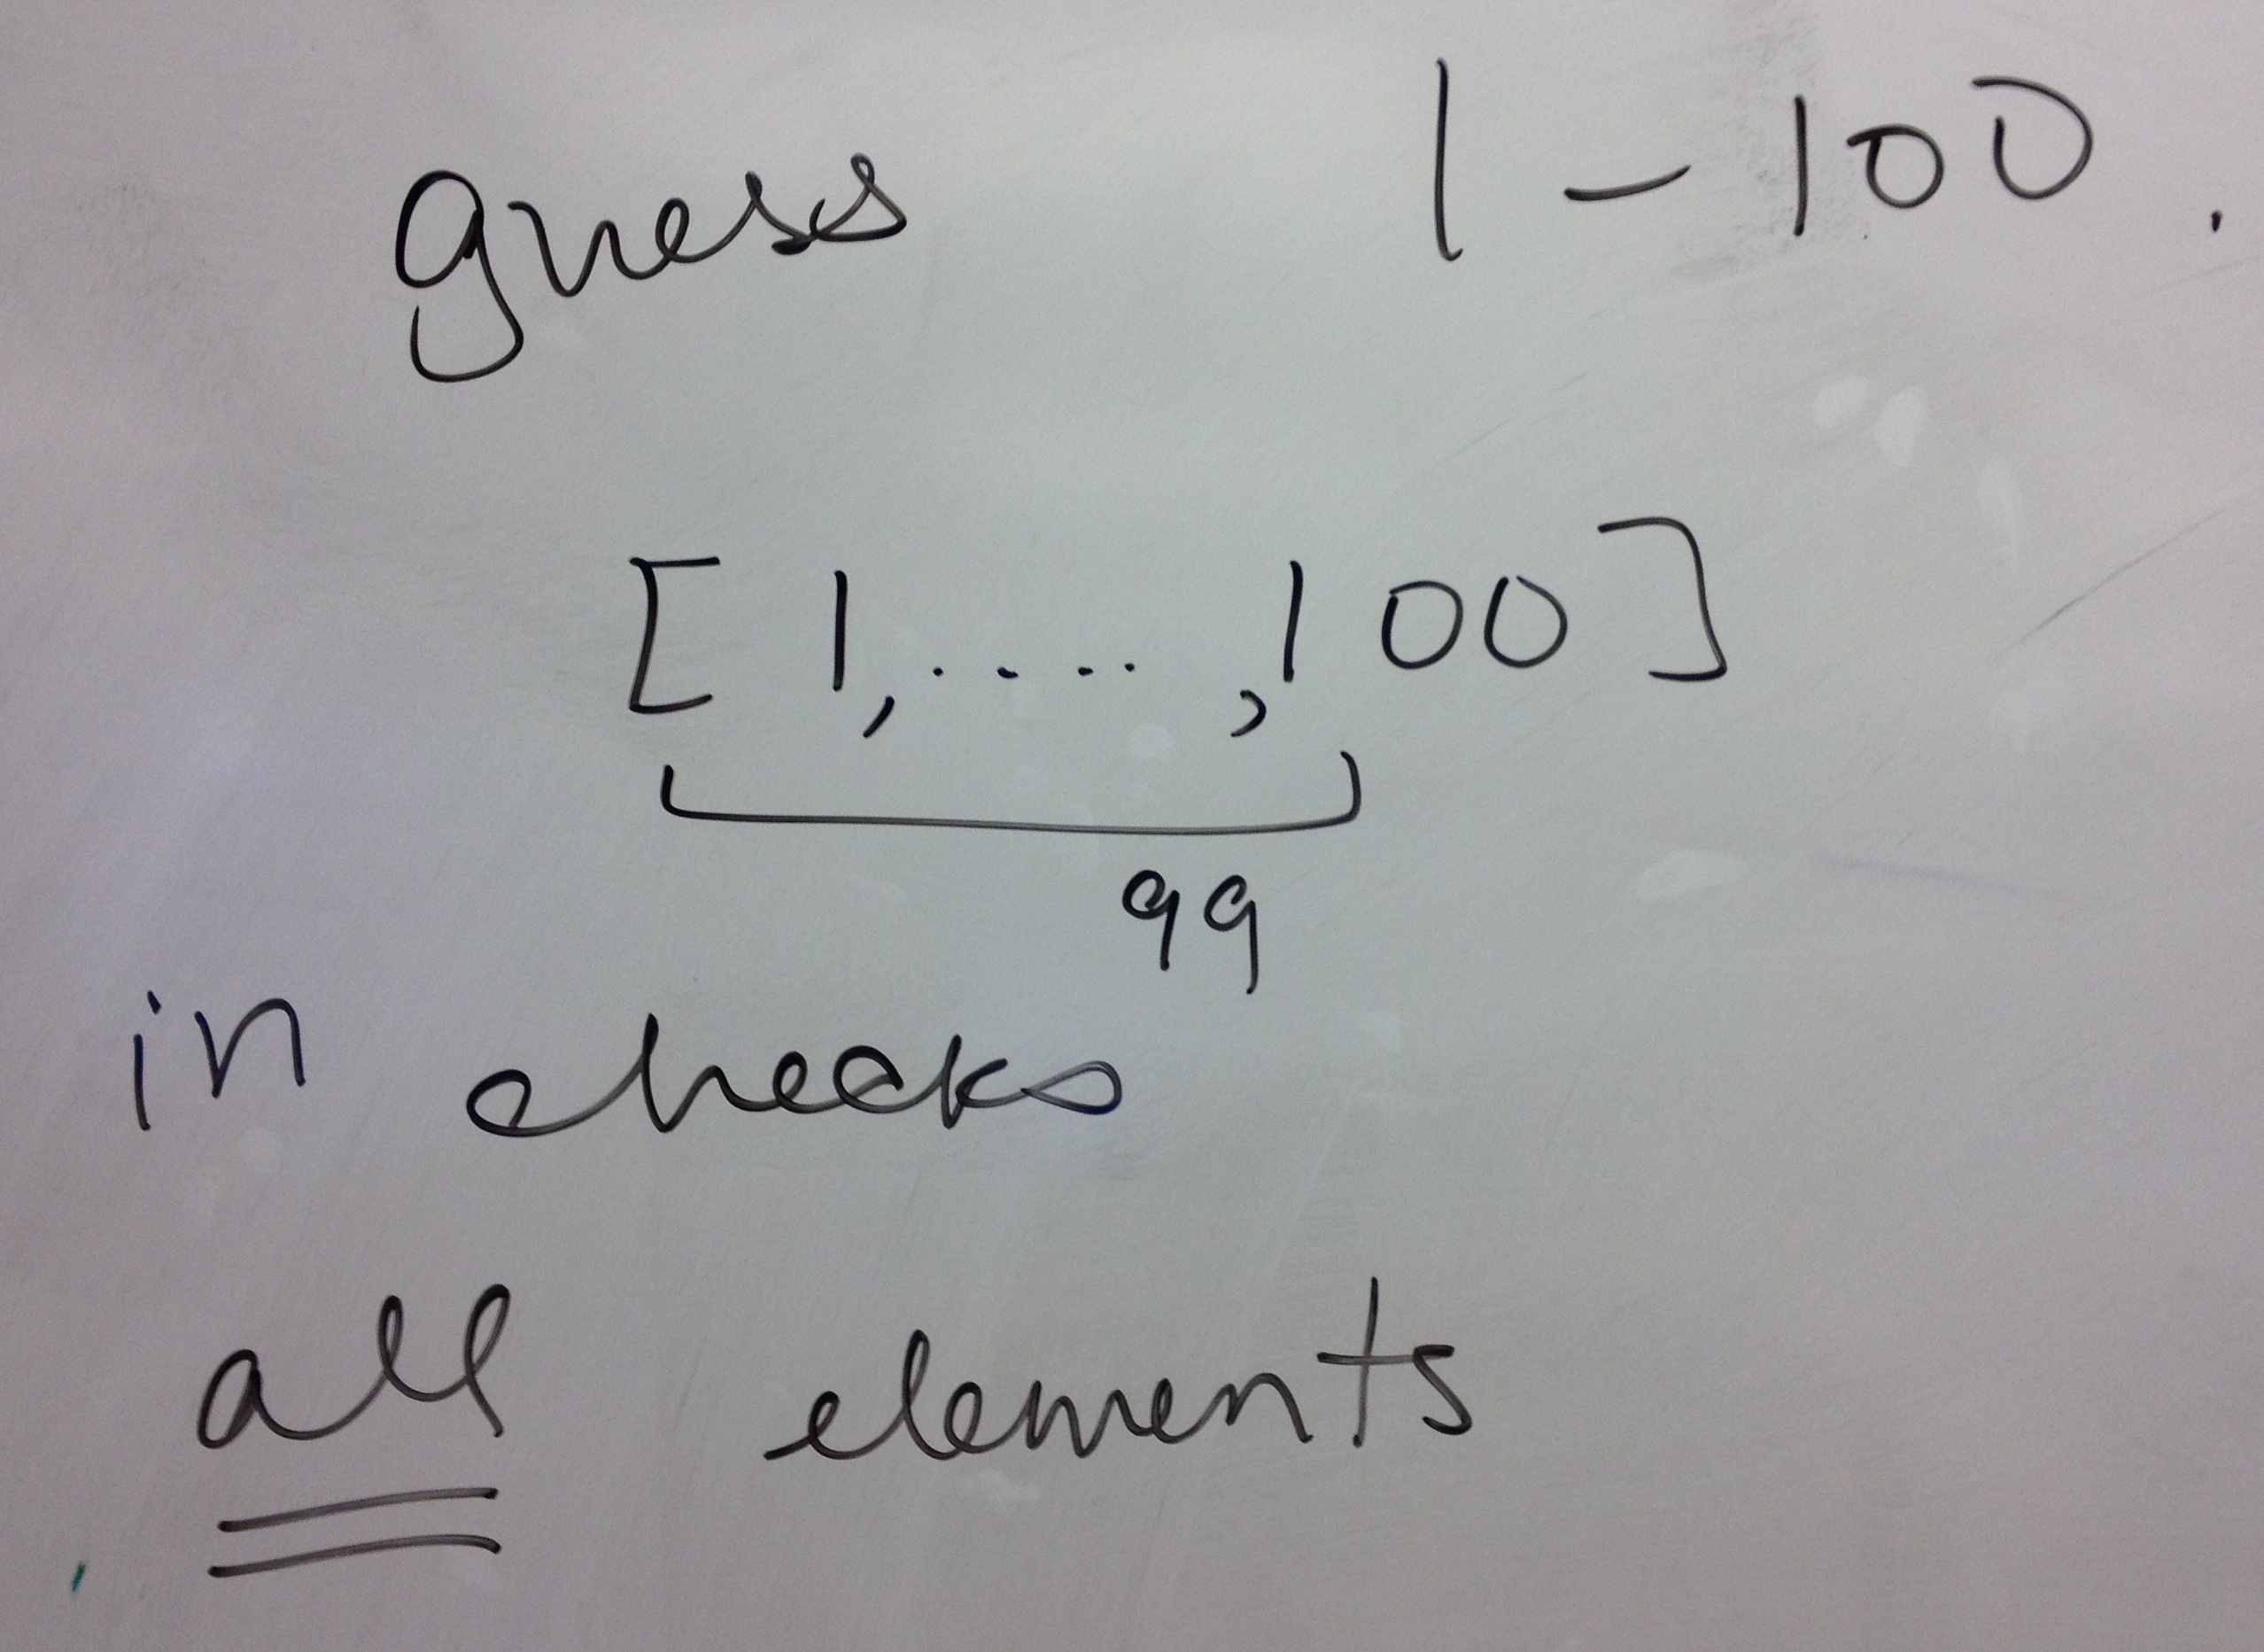 guess 1 - 100.
[ 1, .... , 100 ]
99
in checks
all elements